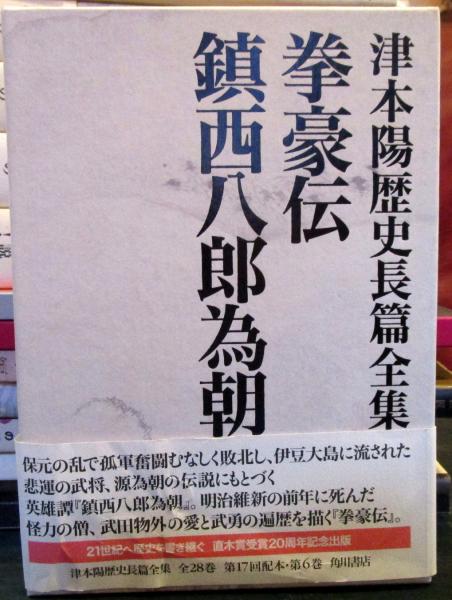 津本陽歴史長篇全集
拳豪伝
鎮西八郎為朝
保元の乱で孤軍奮闘むなしく敗北し、伊豆大島に流された
悲運の武将、源為朝の伝説にもとづく
英雄譚『鎮西八郎為朝』。明治維新の前年に死んだ
怪力の僧、武田物外の愛と武勇の遍歴を描く『拳豪伝』。
21世紀へ歴史を書き継ぐ 直木賞受賞20周年記念出版
津本陽歴史長篇全集 全28巻 第17回配本・第6巻 角川書店